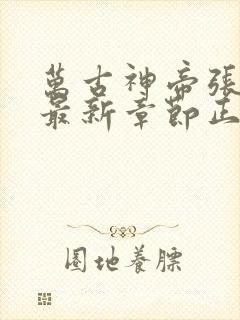 萬古神帝張
最新章節正
圈地養膘